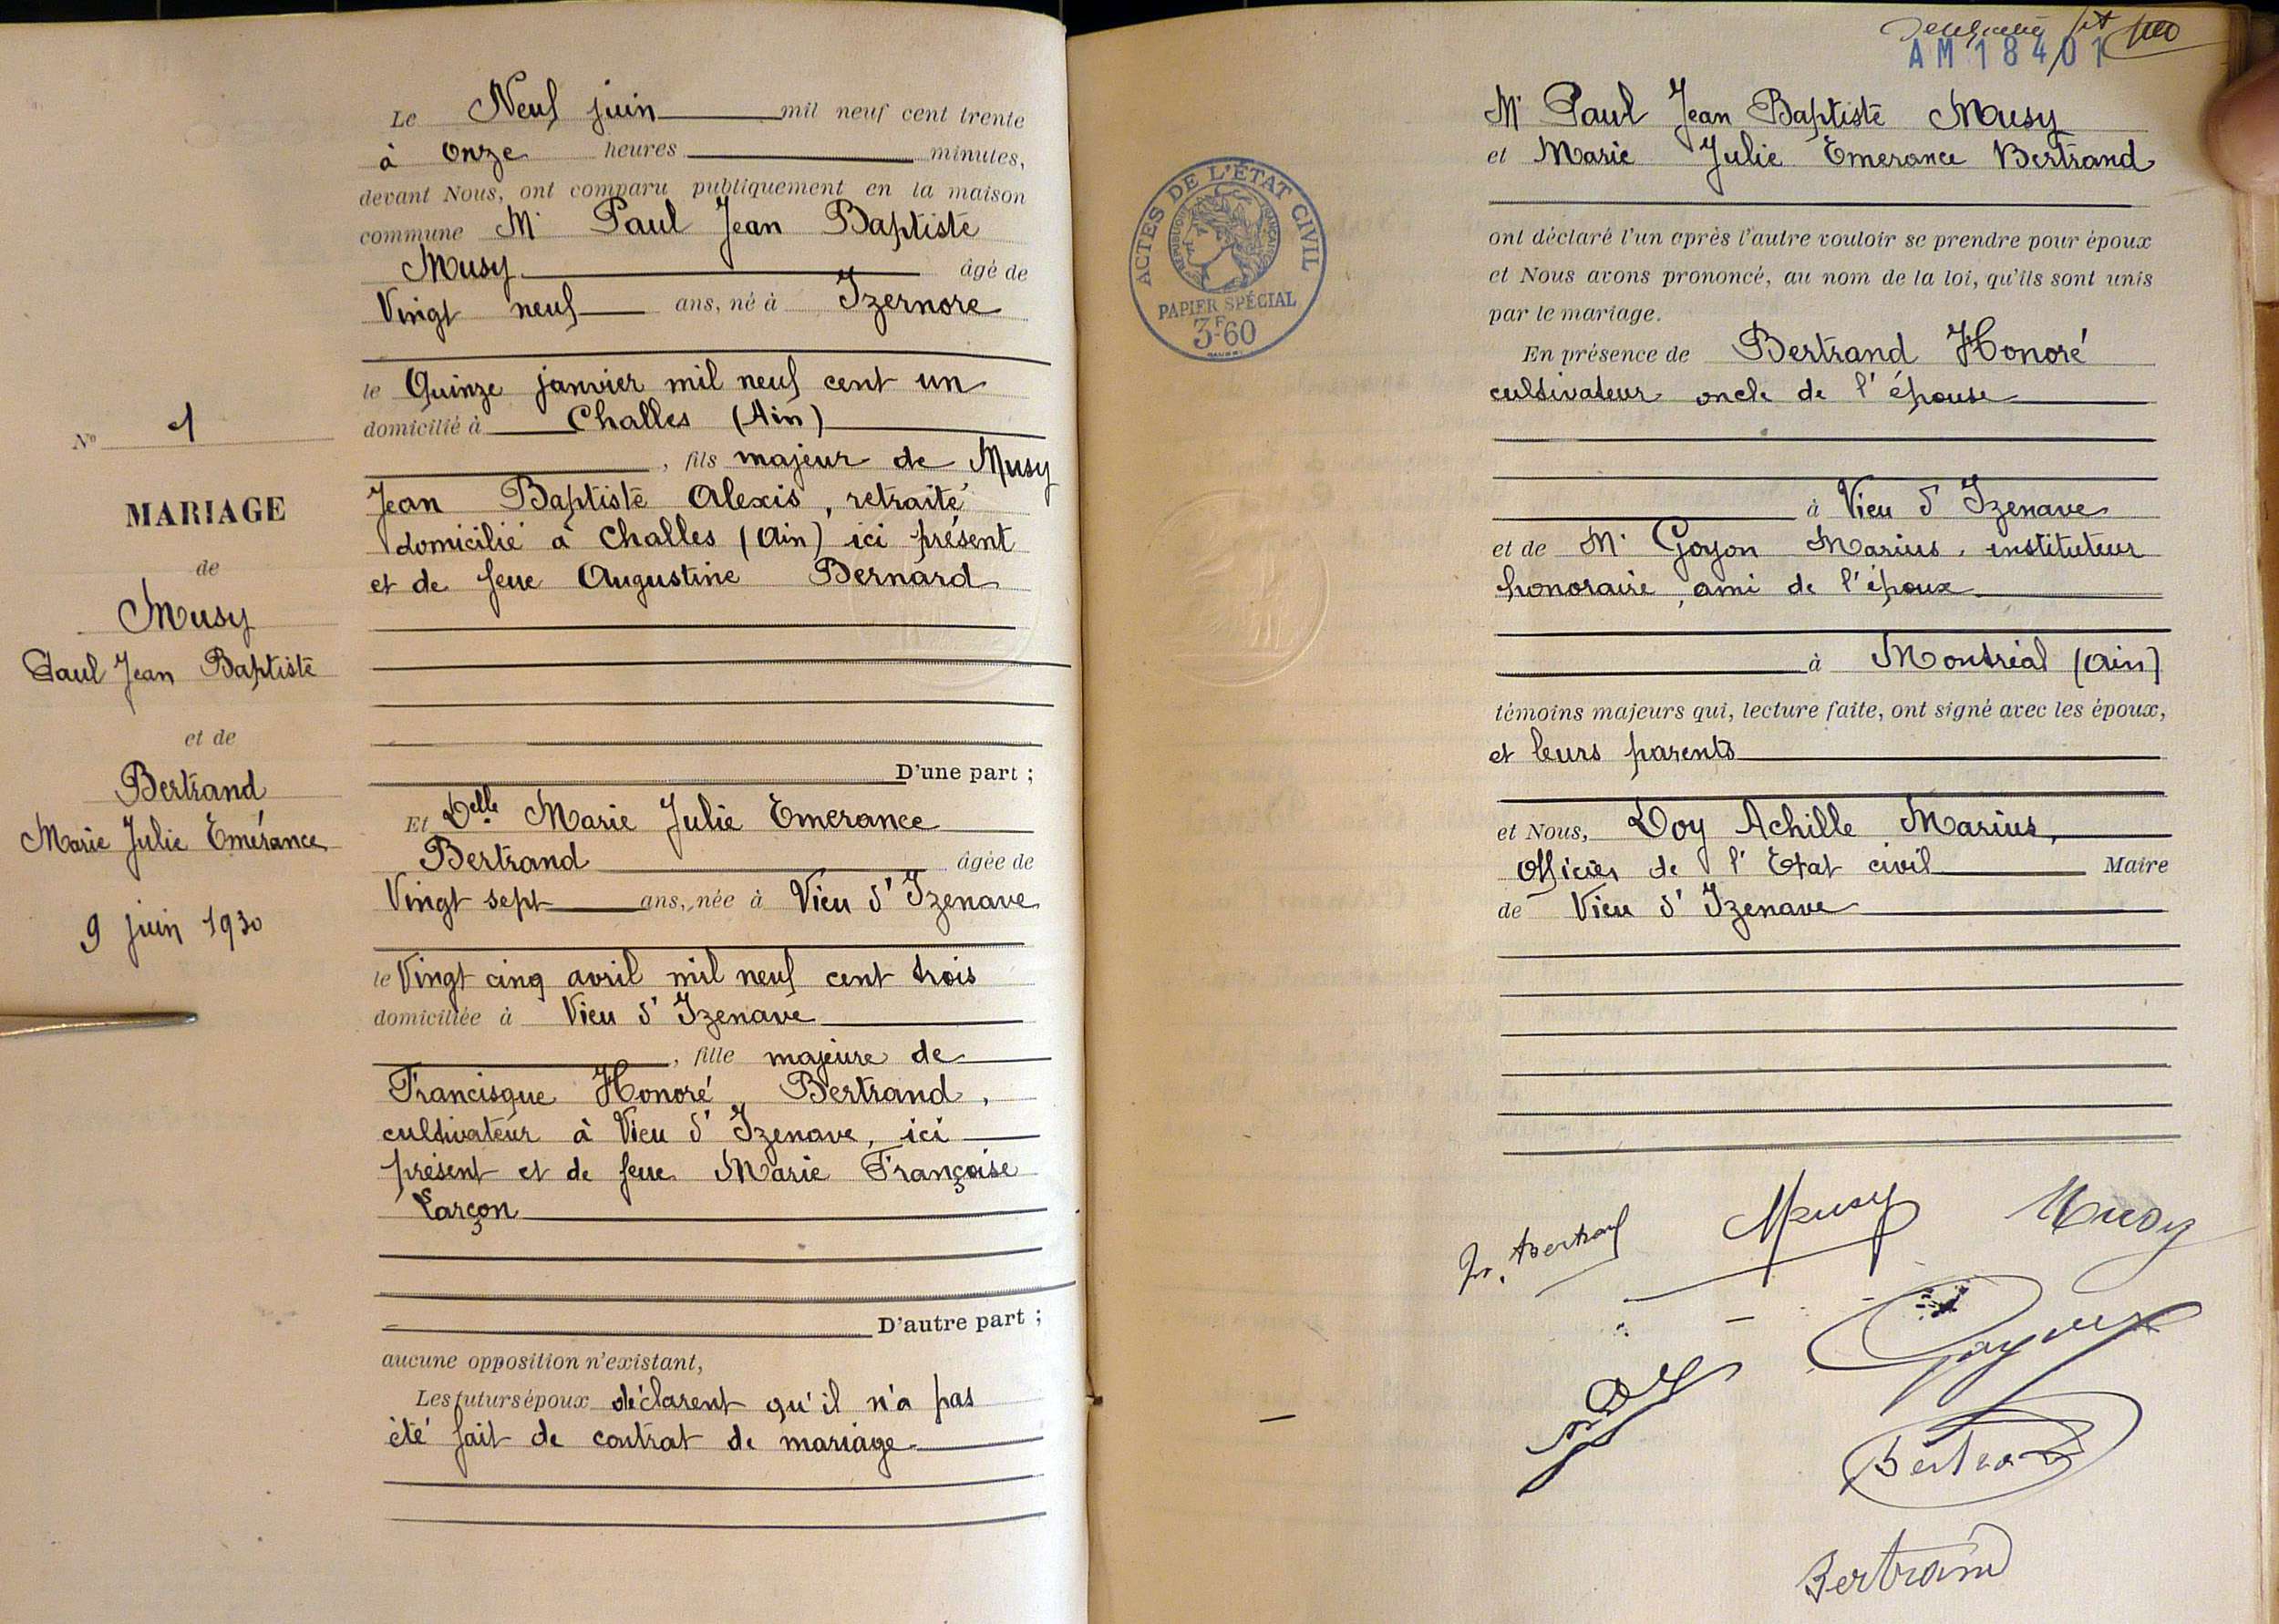 N° 1
MARIAGE
de
Musy
Paul Jean Baptiste
et de
Bertrand
Marie Julie Emérance
9 juin 1930
Le Neuf juin mil neuf cent trente
à onze heures minutes,
devant Nous, ont comparu publiquement en la maison
commune Mr Paul Jean Baptiste
Musy âgé de
Vingt neuf ans, né à Izernore
le Quinze janvier mil neuf cent un
domicilié à Challes (Ain)
, fils majeur de Musy
Jean Baptiste Alexis, retraité
domicilié à Challes (Ain) ici présent
et de feue Augustine Bernard
D'une part ;
Et Delle Marie Julie Emerance
Bertrand âgée de
Vingt sept ans, née à Vieu d'Izenave
le Vingt cinq avril mil neuf cent trois
domiciliée à Vieu d'Izenave
, fille majeure de
Francisque Honoré Bertrand,
cultivateur à Vieu d'Izenave, ici
présent et de feue Marie Françoise
Larçon
D'autre part ;
aucune opposition n'existant,
Les futurs époux déclarent qu'il n'a pas
été fait de contrat de mariage
AM 18401
ACTES DE L'ÉTAT CIVIL
RÉPUBLIQUE FRANÇAISE
PAPIER SPÉCIAL
3F60
Mr Paul Jean Baptiste Musy
et Marie Julie Emerance Bertrand
ont déclaré l'un après l'autre vouloir se prendre pour époux
et Nous avons prononcé, au nom de la loi, qu'ils sont unis
par le mariage.
En présence de Bertrand Honoré
cultivateur oncle de l'épouse
à Vieu d'Izenave
et de Mr Goyon Marius, instituteur
honoraire, ami de l'époux
à Montréal (Ain)
témoins majeurs qui, lecture faite, ont signé avec les époux,
et leurs parents
et Nous, Doy Achille Marius,
Officier de l'Etat civil Maire
de Vieu d'Izenave
Fr. Bertrand Musy Musy
Goyon
Bertrand
Bertrand